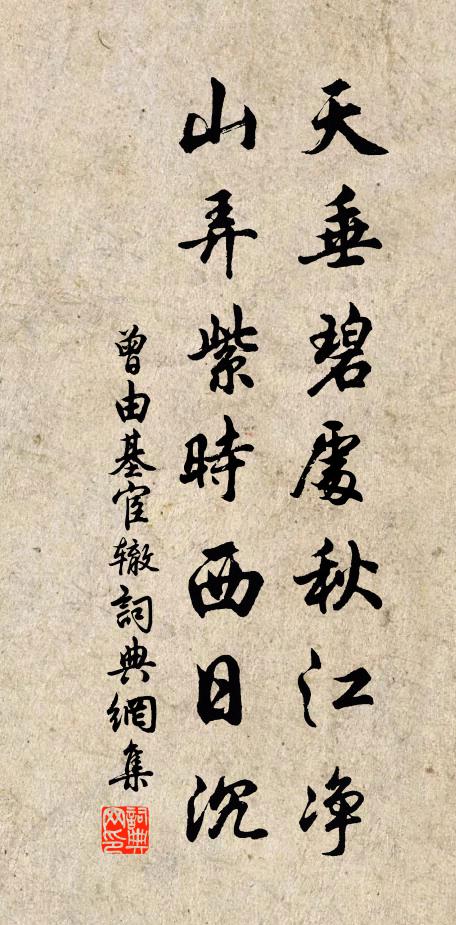 天垂碧處秋江净
山弄紫時西日沉
曾由基宦辙詞典網集
詞典
网印